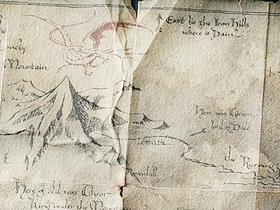 East lie the Iron Hills
where is Dain
onely
Mountain
Here was Girion,
lord in Dale
the Runn
Ravenhill
Here of old was Thror
King under the Mounta